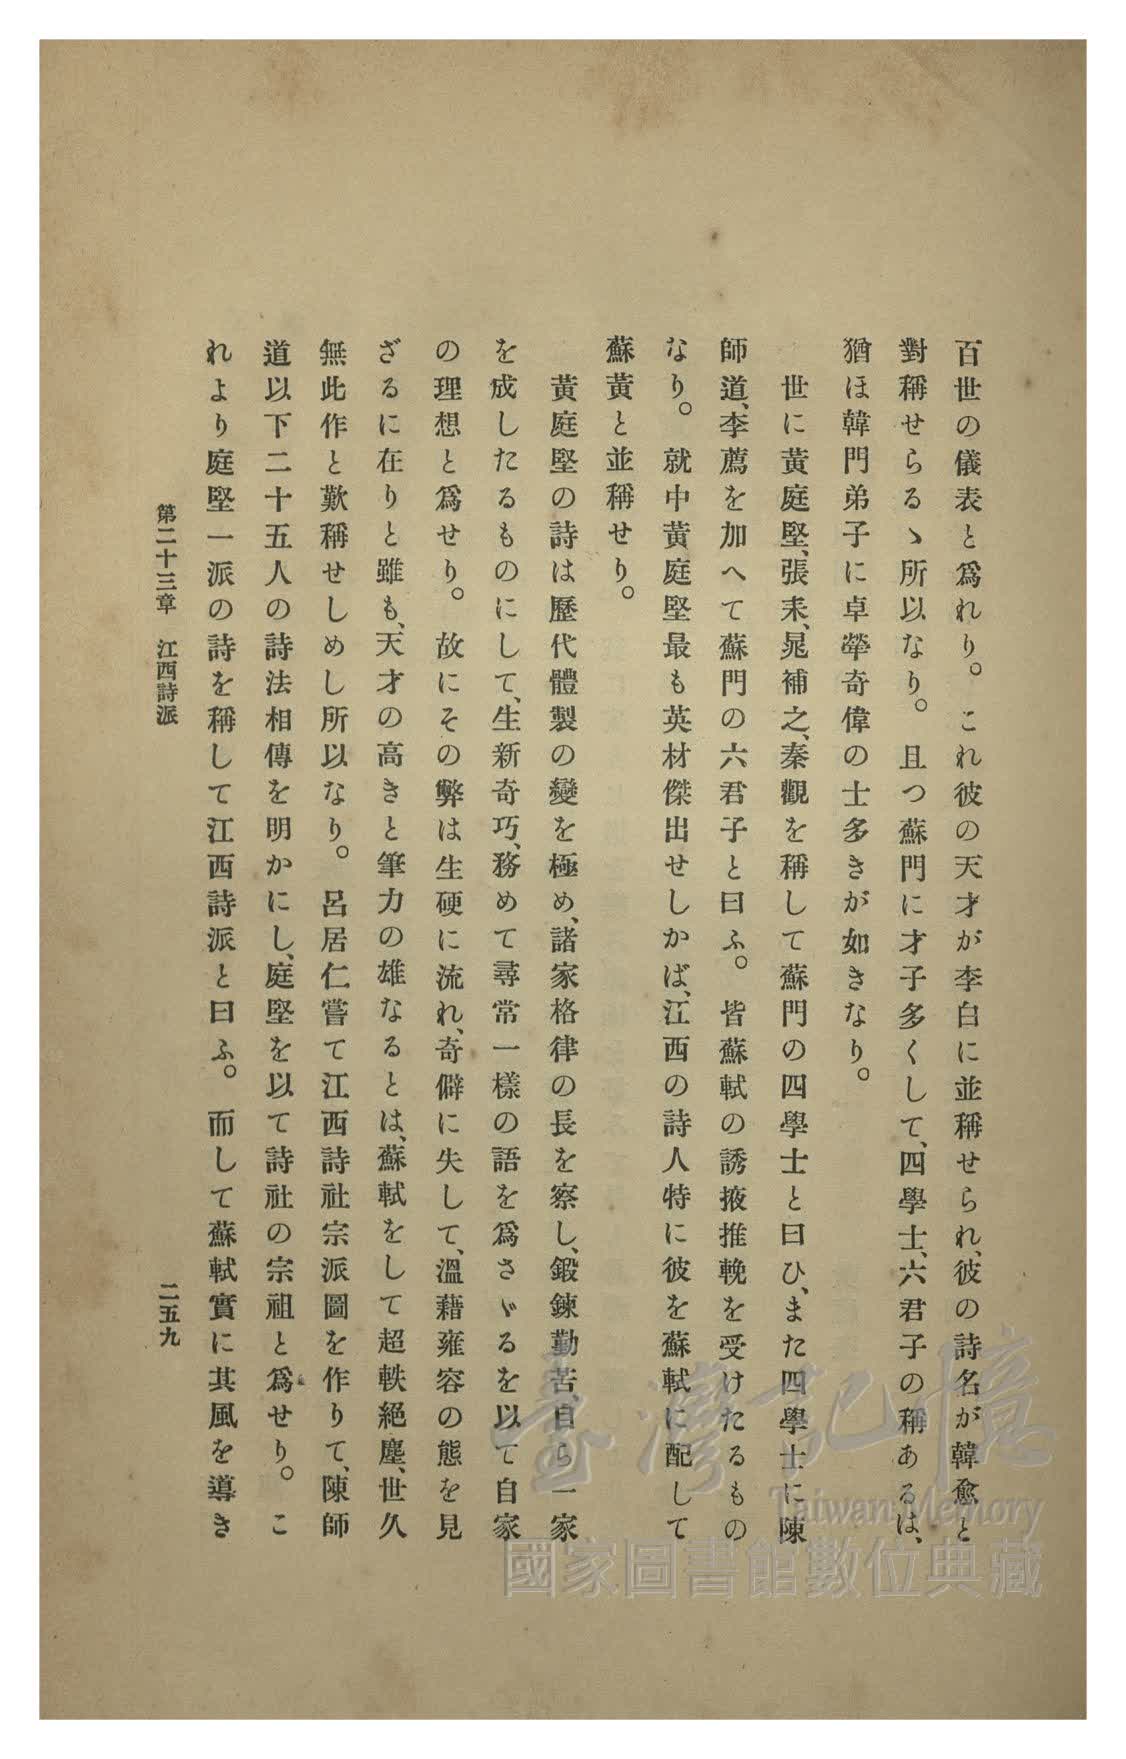 百世の儀表と爲れり。これ彼の天才が李白に並稱せられ、彼の詩名が韓愈と
對稱せらるゝ所以なり。且つ蘇門に才子多くして、四學士、六君子の稱あるは、
猶ほ韓門弟子に卓犖奇偉の士多きが如きなり。
世に黃庭堅、張耒、晁補之、秦觀を稱して蘇門の四學士と曰ひ、また四學士に陳
師道、李薦を加へて蘇門の六君子と曰ふ。皆蘇軾の誘掖推輓を受けたるもの
なり。就中黃庭堅最も英材傑出せしかば、江西の詩人特に彼を蘇軾に配して
蘇黃と並稱せり。
黃庭堅の詩は歷代體製の變を極め、諸家格律の長を察し、鍛鍊勤苦、自ら一家
を成したるものにして、生新奇巧、務めて尋常一樣の語を爲さゞるを以て自家
の理想と爲せり。故にその弊は生硬に流れ、奇僻に失して、溫藉雍容の態を見
ざるに在りと雖も、天才の高きと筆力の雄なるとは、蘇軾をして超軼絕塵、世久
無此作と歎稱せしめし所以なり。呂居仁嘗て江西詩社宗派圖を作りて、陳師
道以下二十五人の詩法相傳を明かにし、庭堅を以て詩社の宗祖と爲せり。こ
れより庭堅一派の詩を稱して江西詩派と曰ふ。而して蘇軾實に其風を導き
第二十三章 江西詩派
二五九
臺灣記憶
Taiwan Memory
國家圖書館數位典藏